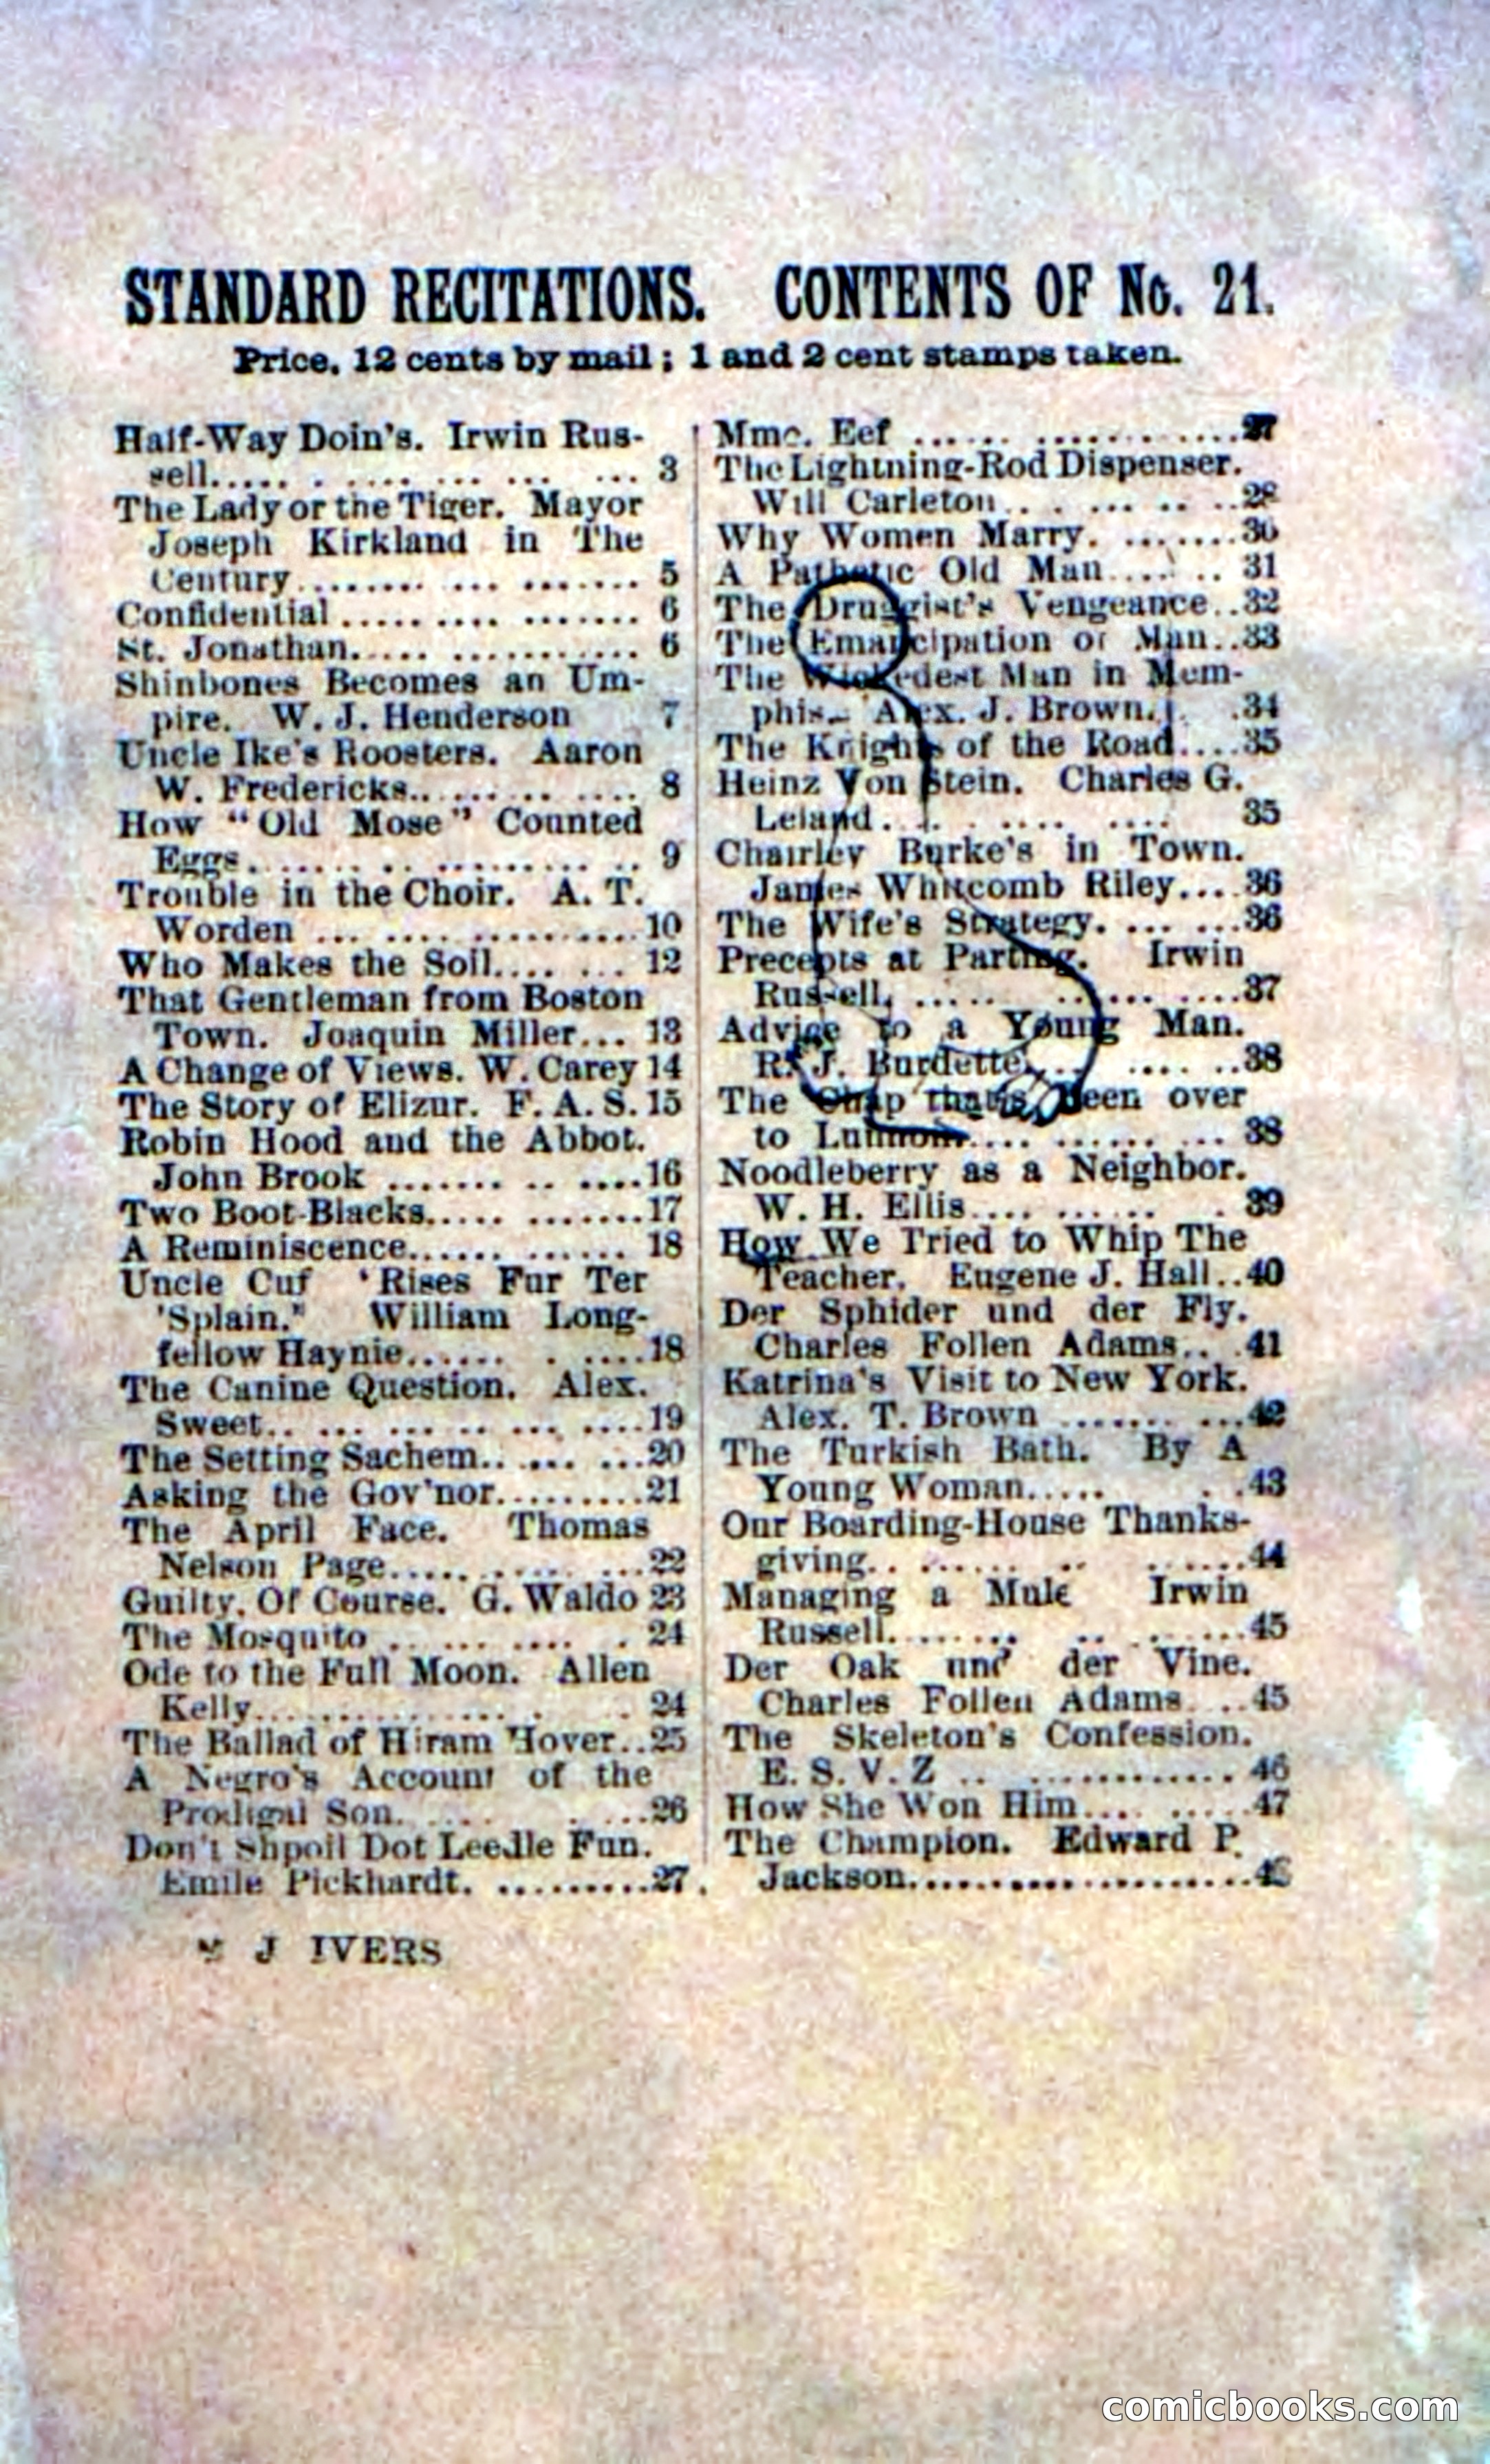 STANDARD RECITATIONS. CONTENTS OF No. 21.
Price, 12 cents by mail; 1 and 2 cent stamps taken.
Half-Way Doin's. Irwin Rus-
sell..... . .... ... ... ... 3
The Lady or the Tiger. Mayor
Joseph Kirkland in The
Century........ ... ....... 5
Confidential ..... .... ....... 6
St. Jonathan..... ............ 6
Shinbones Becomes an Um-
pire. W. J. Henderson 7
Uncle Ike's Roosters. Aaron
W. Fredericks.. ...... .. .... 8
How "Old Mose" Counted
Eggs....... .. .......... .. 9
Trouble in the Choir. A. T.
Worden ... .... ............10
Who Makes the Soil.... ... 12
That Gentleman from Boston
Town. Joaquin Miller... 13
A Change of Views. W. Carey 14
The Story of Elizur. F. A. S. 15
Robin Hood and the Abbot.
John Brook ....... .. ....16
Two Boot-Blacks..... .......17
A Reminiscence...... ...... 18
Uncle Cuf 'Rises Fur Ter
'Splain." William Long-
fellow Haynie...... . ....18
The Canine Question. Alex.
Sweet.. ... ... .. ... ....19
The Setting Sachem.. ... ...20
Asking the Gov'nor..........21
The April Face. Thomas
Nelson Page..... ..... ...22
Guilty, Of Course. G. Waldo 23
The Mosquito .. ... .... . 24
Ode to the Full Moon. Allen
Kelly................ . . 24
The Ballad of Hiram Hover..25
A Negro's Account of the
Prodigal Son. .... . ....26
Don't Shpoil Dot Leedle Fun.
Emile Pickhardt. ..........27
Mme. Eef ...... ............27
The Lightning-Rod Dispenser.
Will Carleton.. . ... .. ..28
Why Women Marry. .......30
A Pathetic Old Man.... .. 31
The Druggist's Vengeance..32
The Emancipation of Man..33
The Wickedest Man in Mem-
phis. Alex. J. Brown. .34
The Knights of the Road....35
Heinz Von Stein. Charles G.
Leland.. . . .... .... 35
Chairley Burke's in Town.
James Whitcomb Riley....36
The Wife's Strategy. ... ...36
Precepts at Parting. Irwin
Russell, ..... ...... ....37
Advice to a Young Man.
R. J. Burdette.... .... ..38
The Chap that's Been over
to Lunnon.... ...... ... 38
Noodleberry as a Neighbor.
W. H. Ellis.... ...... . 39
How We Tried to Whip The
Teacher. Eugene J. Hall..40
Der Sphider und der Fly.
Charles Follen Adams.. .41
Katrina's Visit to New York.
Alex. T. Brown ....... ...42
The Turkish Bath. By A
Young Woman..... . .43
Our Boarding-House Thanks-
giving.. ....... .. ......44
Managing a Mule Irwin
Russell........ .. .......45
Der Oak und der Vine.
Charles Follen Adams. ..45
The Skeleton's Confession.
E. S. V. Z .. ............. 46
How She Won Him.... .....47
The Champion. Edward P.
Jackson.....................
M J IVERS
comicbooks.com